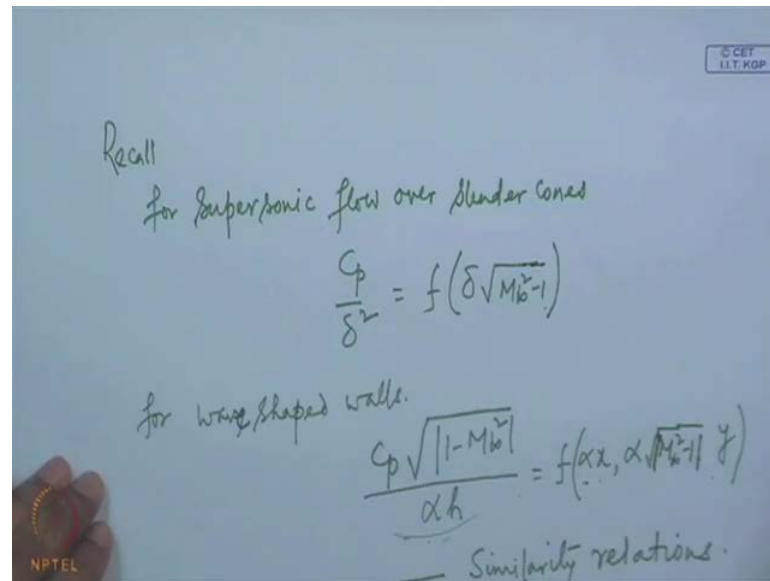 © CET
I.I.T. KGP
Recall
for supersonic flow over slender cones
Cp/δ² = f(δ√(M∞²-1))
for wave shaped walls.
Cp√|1-M∞²| / αh = f(αx, α√|M∞²-1| y)
Similarity relations.
NPTEL